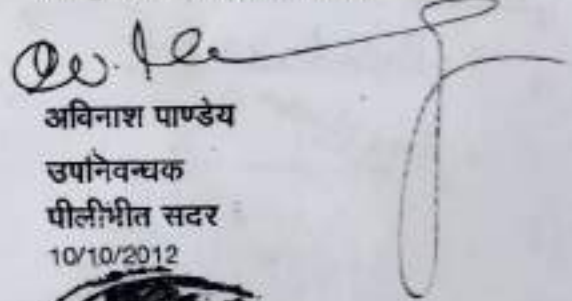 अविनाश पाण्डेय
उपनिवन्धक
पीलीभीत सदर
10/10/2012